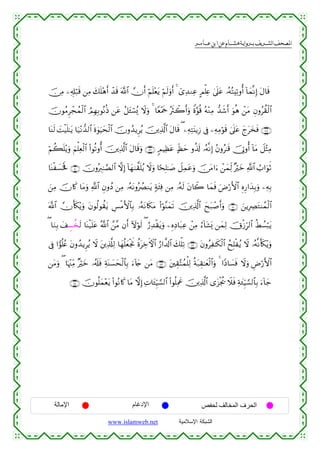 المصحف الشريف برواية هشام عن ابن عامر
قَالَ إِنَّمَا أُوتِيتُهُ عَلَىٰ عِلْمٍ عِندِي أَوَلَمْ يَعْلَمْ أَنَّ اللَّهَ قَدْ أَهْلَكَ مِن قَبْلِهِ مِنَ
الْقُرُونِ مَنْ هُوَ أَشَدُّ مِنْهُ قُوَّةً وَأَكْثَرُ جَمْعًا وَلَا يُسْئَلُ عَن ذُنُوبِهِمُ الْمُجْرِمُونَ
فَخَرَجَ عَلَىٰ قَوْمِهِ فِي زِينَتِهِ قَالَ الَّذِينَ يُرِيدُونَ الْحَيَوٰةَ الدُّنْيَا يَٰلَيْتَ لَنَا
مِثْلَ مَا أُوتِيَ قَٰرُونُ إِنَّهُ لَذُو حَظٍّ عَظِيمٍ وَقَالَ الَّذِينَ أُوتُوا الْعِلْمَ وَيْلَكُمْ
ثَوَابُ اللَّهِ خَيْرٌ لِّمَنْ ءَامَنَ وَعَمِلَ صَٰلِحًا وَلَا يُلَقَّىٰهَا إِلَّا الصَّٰبِرُونَ فَخَسَفْنَا
بِهِ وَبِدَارِهِ الْأَرْضَ فَمَا كَانَ لَهُ مِن فِئَةٍ يَنصُرُونَهُ مِن دُونِ اللَّهِ وَمَا كَانَ مِنَ
الْمُنتَصِرِينَ وَأَصْبَحَ الَّذِينَ تَمَنَّوْا مَكَانَهُ بِالْأَمْسِ يَقُولُونَ وَيْكَأَنَّ اللَّهَ
يَبْسُطُ الرِّزْقَ لِمَن يَشَاءُ مِنْ عِبَادِهِ وَيَقْدِرُ لَوْلَا أَن مَّنَّ اللَّهُ عَلَيْنَا لَخُسِفَ بِنَا
وَيْكَأَنَّهُ لَا يُفْلِحُ الْكَٰفِرُونَ تِلْكَ الدَّارُ الْءَاخِرَةُ نَجْعَلُهَا لِلَّذِينَ لَا يُرِيدُونَ عُلُوًّا فِي
الْأَرْضِ وَلَا فَسَادًا وَالْعَٰقِبَةُ لِلْمُتَّقِينَ مَن جَاءَ بِالْحَسَنَةِ فَلَهُ خَيْرٌ مِّنْهَا وَمَن
جَاءَ بِالسَّيِّئَةِ فَلَا يُجْزَى الَّذِينَ عَمِلُوا السَّيِّئَاتِ إِلَّا مَا كَانُوا يَعْمَلُونَ
الحرف المخالف لحفص الإدغام الإمالة
الشبكة الإسلامية www.islamweb.net